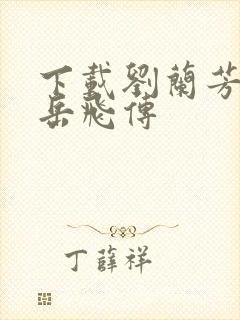 下載劉蘭芳
岳飛傳
丁薛祥